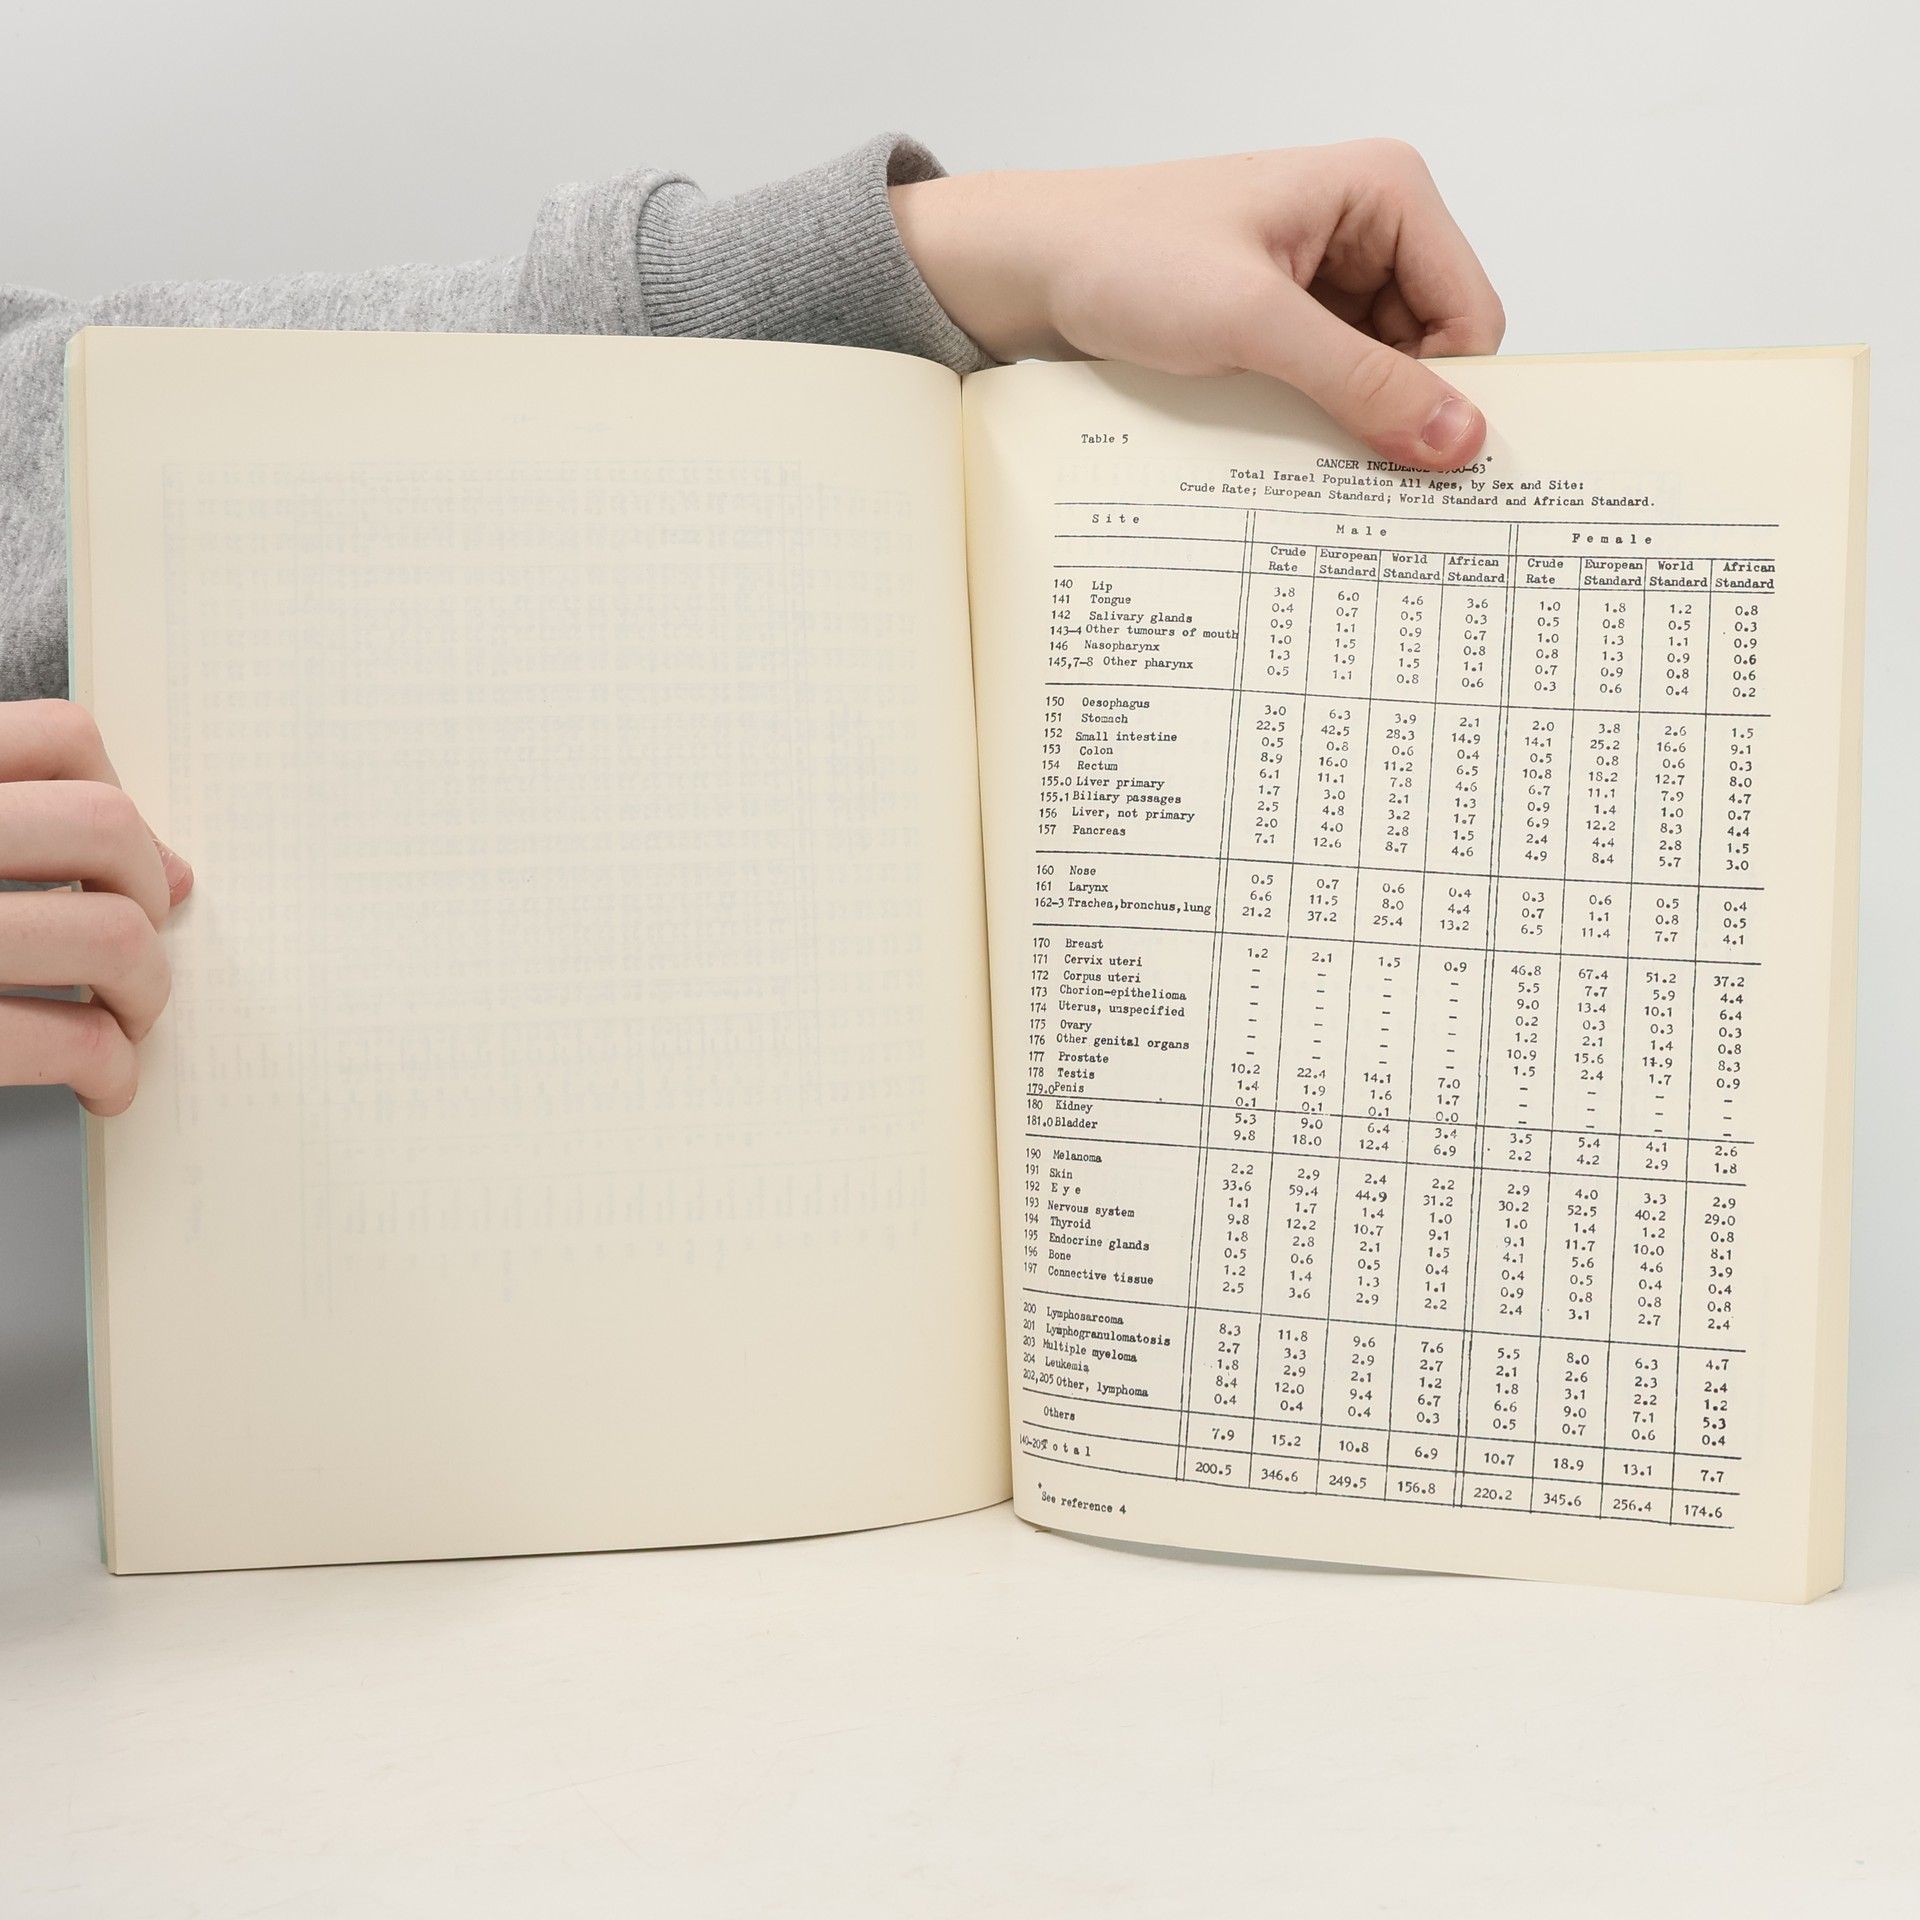 Table 5
CANCER INCIDENCE 1960-63*
Total Israel Population All Ages, by Sex and Site:
Crude Rate; European Standard; World Standard and African Standard.
Site Male Female
Crude Rate European Standard World Standard African Standard Crude Rate European Standard World Standard African Standard
140 Lip 3.8 6.0 4.6 3.6 1.0 1.8 1.2 0.8
141 Tongue 0.4 0.7 0.5 0.3 0.5 0.8 0.5 0.3
142 Salivary glands 0.9 1.1 0.9 0.7 1.0 1.3 1.1 0.9
143-4 Other tumours of mouth 1.0 1.5 1.2 0.8 0.8 1.3 0.9 0.6
146 Nasopharynx 1.3 1.9 1.5 1.1 0.7 0.9 0.8 0.6
145,7-8 Other pharynx 0.5 1.1 0.8 0.6 0.3 0.6 0.4 0.2
150 Oesophagus 3.0 6.3 3.9 2.1 2.0 3.8 2.6 1.5
151 Stomach 22.5 42.5 28.3 14.9 14.1 25.2 16.6 9.1
152 Small intestine 0.5 0.8 0.6 0.4 0.5 0.8 0.6 0.3
153 Colon 8.9 16.0 11.2 6.5 10.8 18.2 12.7 8.0
154 Rectum 6.1 11.1 7.8 4.6 6.7 11.1 7.9 4.7
155.0 Liver primary 1.7 3.0 2.1 1.3 0.9 1.4 1.0 0.7
155.1 Biliary passages 2.5 4.8 3.2 1.7 6.9 12.2 8.3 4.4
156 Liver, not primary 2.0 4.0 2.8 1.5 2.4 4.4 2.8 1.5
157 Pancreas 7.1 12.6 8.7 4.6 4.9 8.4 5.7 3.0
160 Nose 0.5 0.7 0.6 0.4 0.3 0.6 0.5 0.4
161 Larynx 6.6 11.5 8.0 4.4 0.7 1.1 0.8 0.5
162-3 Trachea,bronchus,lung 21.2 37.2 25.4 13.2 6.5 11.4 7.7 4.1
170 Breast 1.2 2.1 1.5 0.9 46.8 67.4 51.2 37.2
171 Cervix uteri - - - - 5.5 7.7 5.9 4.4
172 Corpus uteri - - - - 9.0 13.4 10.1 6.4
173 Chorion-epithelioma - - - - 0.2 0.3 0.3 0.3
174 Uterus, unspecified - - - - 1.2 2.1 1.4 0.8
175 Ovary - - - - 10.9 15.6 11.9 8.3
176 Other genital organs - - - - 1.5 2.4 1.7 0.9
177 Prostate 10.2 22.4 14.1 7.0 - - - -
178 Testis 1.4 1.9 1.6 1.7 - - - -
179.0 Penis 0.1 0.1 0.1 0.0 - - - -
180 Kidney 5.3 9.0 6.4 3.4 3.5 5.4 4.1 2.6
181.0 Bladder 9.8 18.0 12.4 6.9 2.2 4.2 2.9 1.8
190 Melanoma 2.2 2.9 2.4 2.2 2.9 4.0 3.3 2.9
191 Skin 33.6 59.4 44.9 31.2 30.2 52.5 40.2 29.0
192 Eye 1.1 1.7 1.4 1.0 1.0 1.4 1.2 0.8
193 Nervous system 9.8 12.2 10.7 9.1 9.1 11.7 10.0 8.1
194 Thyroid 1.8 2.8 2.1 1.5 4.1 5.6 4.6 3.9
195 Endocrine glands 0.5 0.6 0.5 0.4 0.4 0.5 0.4 0.4
196 Bone 1.2 1.4 1.3 1.1 0.9 0.8 0.8 0.8
197 Connective tissue 2.5 3.6 2.9 2.2 2.4 3.1 2.7 2.4
200 Lymphosarcoma 8.3 11.8 9.6 7.6 5.5 8.0 6.3 4.7
201 Lymphogranulomatosis 2.7 3.3 2.9 2.7 2.1 2.6 2.3 2.4
203 Multiple myeloma 1.8 2.9 2.1 1.2 1.8 3.1 2.2 1.2
204 Leukemia 8.4 12.0 9.4 6.7 6.6 9.0 7.1 5.3
202,205 Other, lymphoma 0.4 0.4 0.4 0.3 0.5 0.7 0.6 0.4
Others 7.9 15.2 10.8 6.9 10.7 18.9 13.1 7.7
140-205 Total 200.5 346.6 249.5 156.8 220.2 345.6 256.4 174.6
*See reference 4